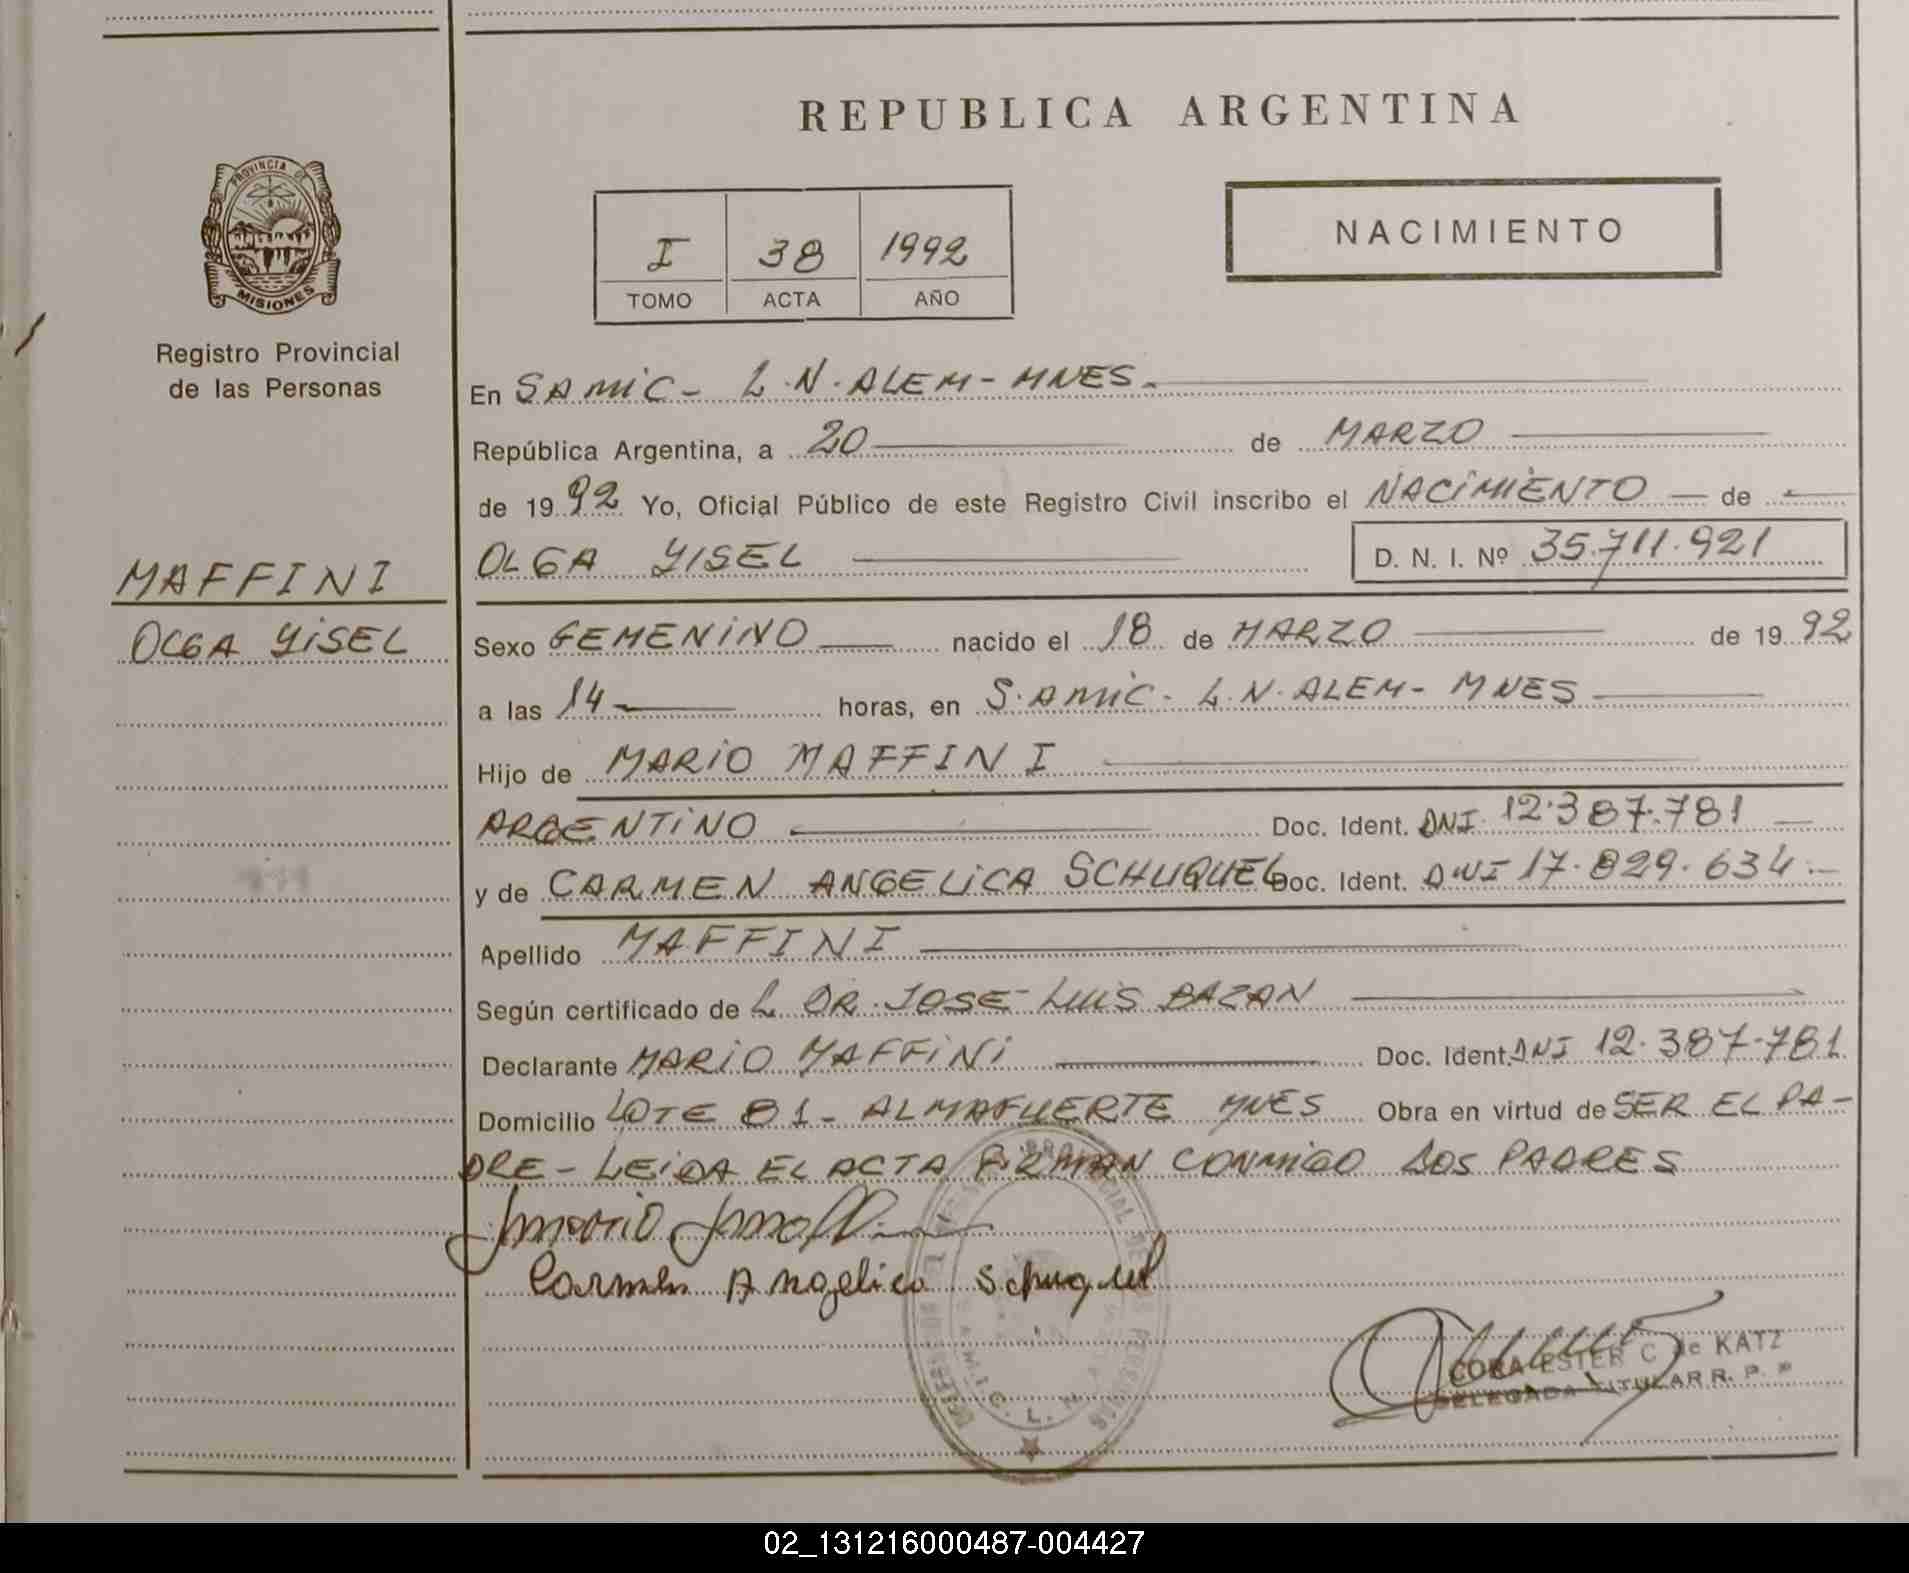 REPUBLICA ARGENTINA
PROVINCIA DE
MISIONES
Registro Provincial
de las Personas
I 38 1992
TOMO ACTA AÑO
NACIMIENTO
En SAMIC - L.N.ALEM - MNES.
República Argentina, a 20 de MARZO
de 1992 Yo, Oficial Público de este Registro Civil inscribo el NACIMIENTO de
OLGA YISEL D. N. I. Nº 35.711.921
MAFFINI
OLGA YISEL
Sexo FEMENINO nacido el 18 de MARZO de 1992
a las 14 horas, en S.AMIC - L.N.ALEM - MNES
Hijo de MARIO MAFFINI
ARGENTINO Doc. Ident. DNI 12.387.781
y de CARMEN ANGELICA SCHUQUEL Doc. Ident. DNI 17.829.634.-
Apellido MAFFINI
Según certificado de L DR. JOSE LUIS BAZAN
Declarante MARIO MAFFINI Doc. Ident. DNI 12.387.781
Domicilio LOTE 81 - ALMAFUERTE MNES Obra en virtud de SER EL PA-
DRE - LEIDA EL ACTA FIRMAN CONMIGO LOS PADRES
Mario Maffini
Carmen Angelica Schuquel
CORA ESTER C de KATZ
DELEGADA TITULAR R. P. P
02_131216000487-004427